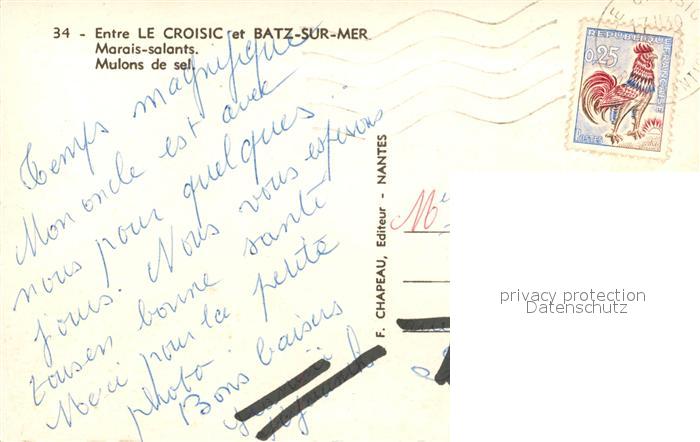 34 - Entre LE CROISIC et BATZ-SUR-MER
Marais-salants.
Mulons de sel.
Temps magnifique
Mon oncle est avec
nous pour quelques
jours. Nous vous espérons
tous en bonne santé
Merci pour la petite
photo.
Bons baisers
F. CHAPEAU, Editeur - NANTES
REPUBLIQUE FRANÇAISE
0,25
POSTES
privacy protection
Datenschutz